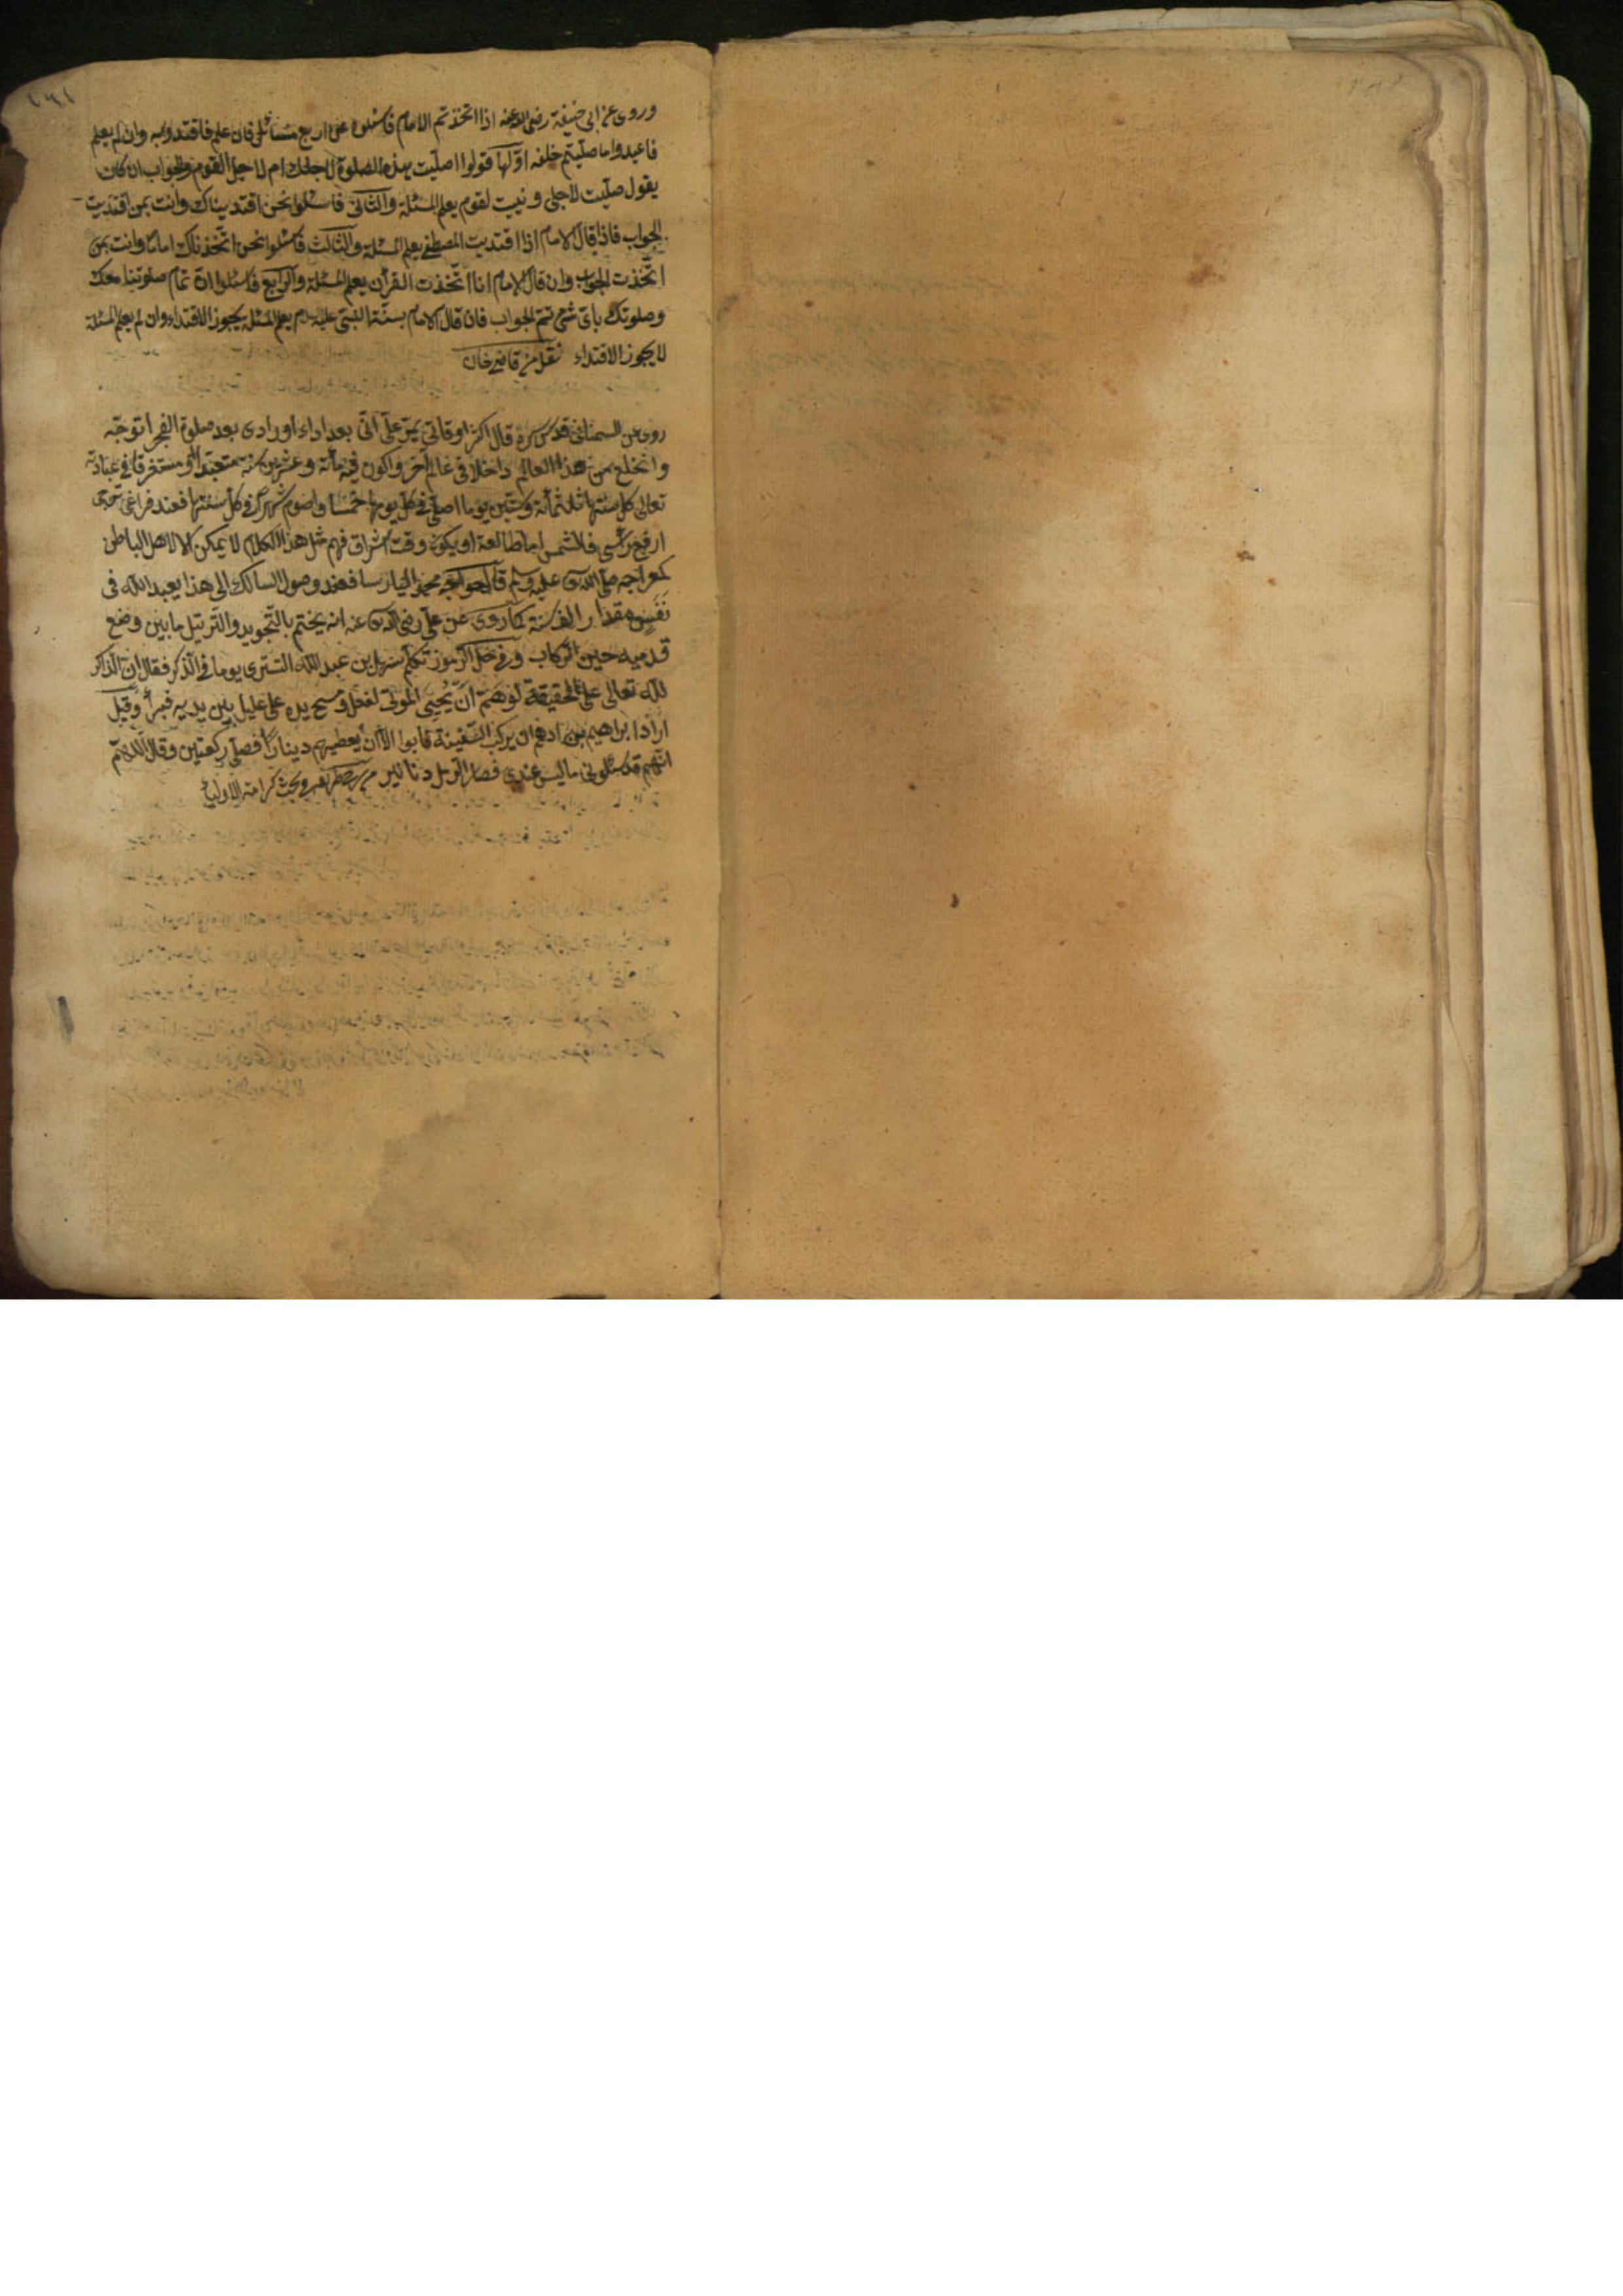 وروى عن ابى حنيفة رضى الله عنه اذا اتخذتم الامام فاسئلوه عن اربع مسائل فان علم فاقتدوا به وان لم يعلم
فاعيدوا ما صليتم خلفه اولها قولوا اصليت بهذه الصلوة لاجلك ام لاجل القوم والجواب ان كان
يقول صليت لاجلى ونيت لقوم يعلم المسئلة والثانى فاسئلوا نحن اقتديناك وانت بمن اقتديت
الجواب فاذا قال الامام اذا اقتديت المصطفى يعلم المسئلة والثالث فاسئلوا نحن اتخذناك اماما وانت بمن
اتخذت الجواب وان قال الامام انا اتخذت القرأن يعلم المسئلة والرابع فاسئلوا ان تمام صلوتنا معك
وصلوتك باى شئ تتم الجواب فان قال الامام بسنة النبى عليه السلام يعلم المسئلة يجوز الاقتداء وان لم يعلم المسئلة
لا يجوز الاقتداء نقل من قاضيخان
روى عن السمنانى قدس سره قال اكثر اوقاتى يمر على انى بعد اداء اورادى بعد صلوة الفجر اتوجه
وانخلع من هذا العالم داخلا فى عالم آخر واكون فيه مائة وعشرين سنة متعبدا ومستغرقا فى عبادته
تعالى كل سنتها ثلثمائة وستين يوما اصلى فى كل يومها خمسا واصوم شهرا فى كل سنتها فعند فراغى حتى
ارفع رأسى فالشمس اما طالعة او يكون وقت اشراق فهم مثل هذا الكلام لا يمكن الا لاهل الباطن
كمعراجه صلى الله تعالى عليه وسلم قال خواجه محمد پارسا فعند وصول السالك الى هذا يعبد الله فى
نفس مقدار الف سنة كما روى عن على رضى الله تعالى عنه انه يختم بالتجويد والترتيل ما بين وضع
قدميه حين الركاب وفى حل الرموز تكلم سهل بن عبد الله التسترى يوما فى الذكر فقال ان الذاكر
لله تعالى على الحقيقة لو هم ان يحيى الموتى لفعل ومسح يده على عليل بين يديه فبرأ وقيل
اراد ابراهيم بن ادهم ان يركب السفينة فابوا الا ان يعطيهم دينارا فصلى ركعتين وقال اللهم
انهم قد سئلونى ما ليس عندى فصار الرمل دنانير كرامة الاولياء